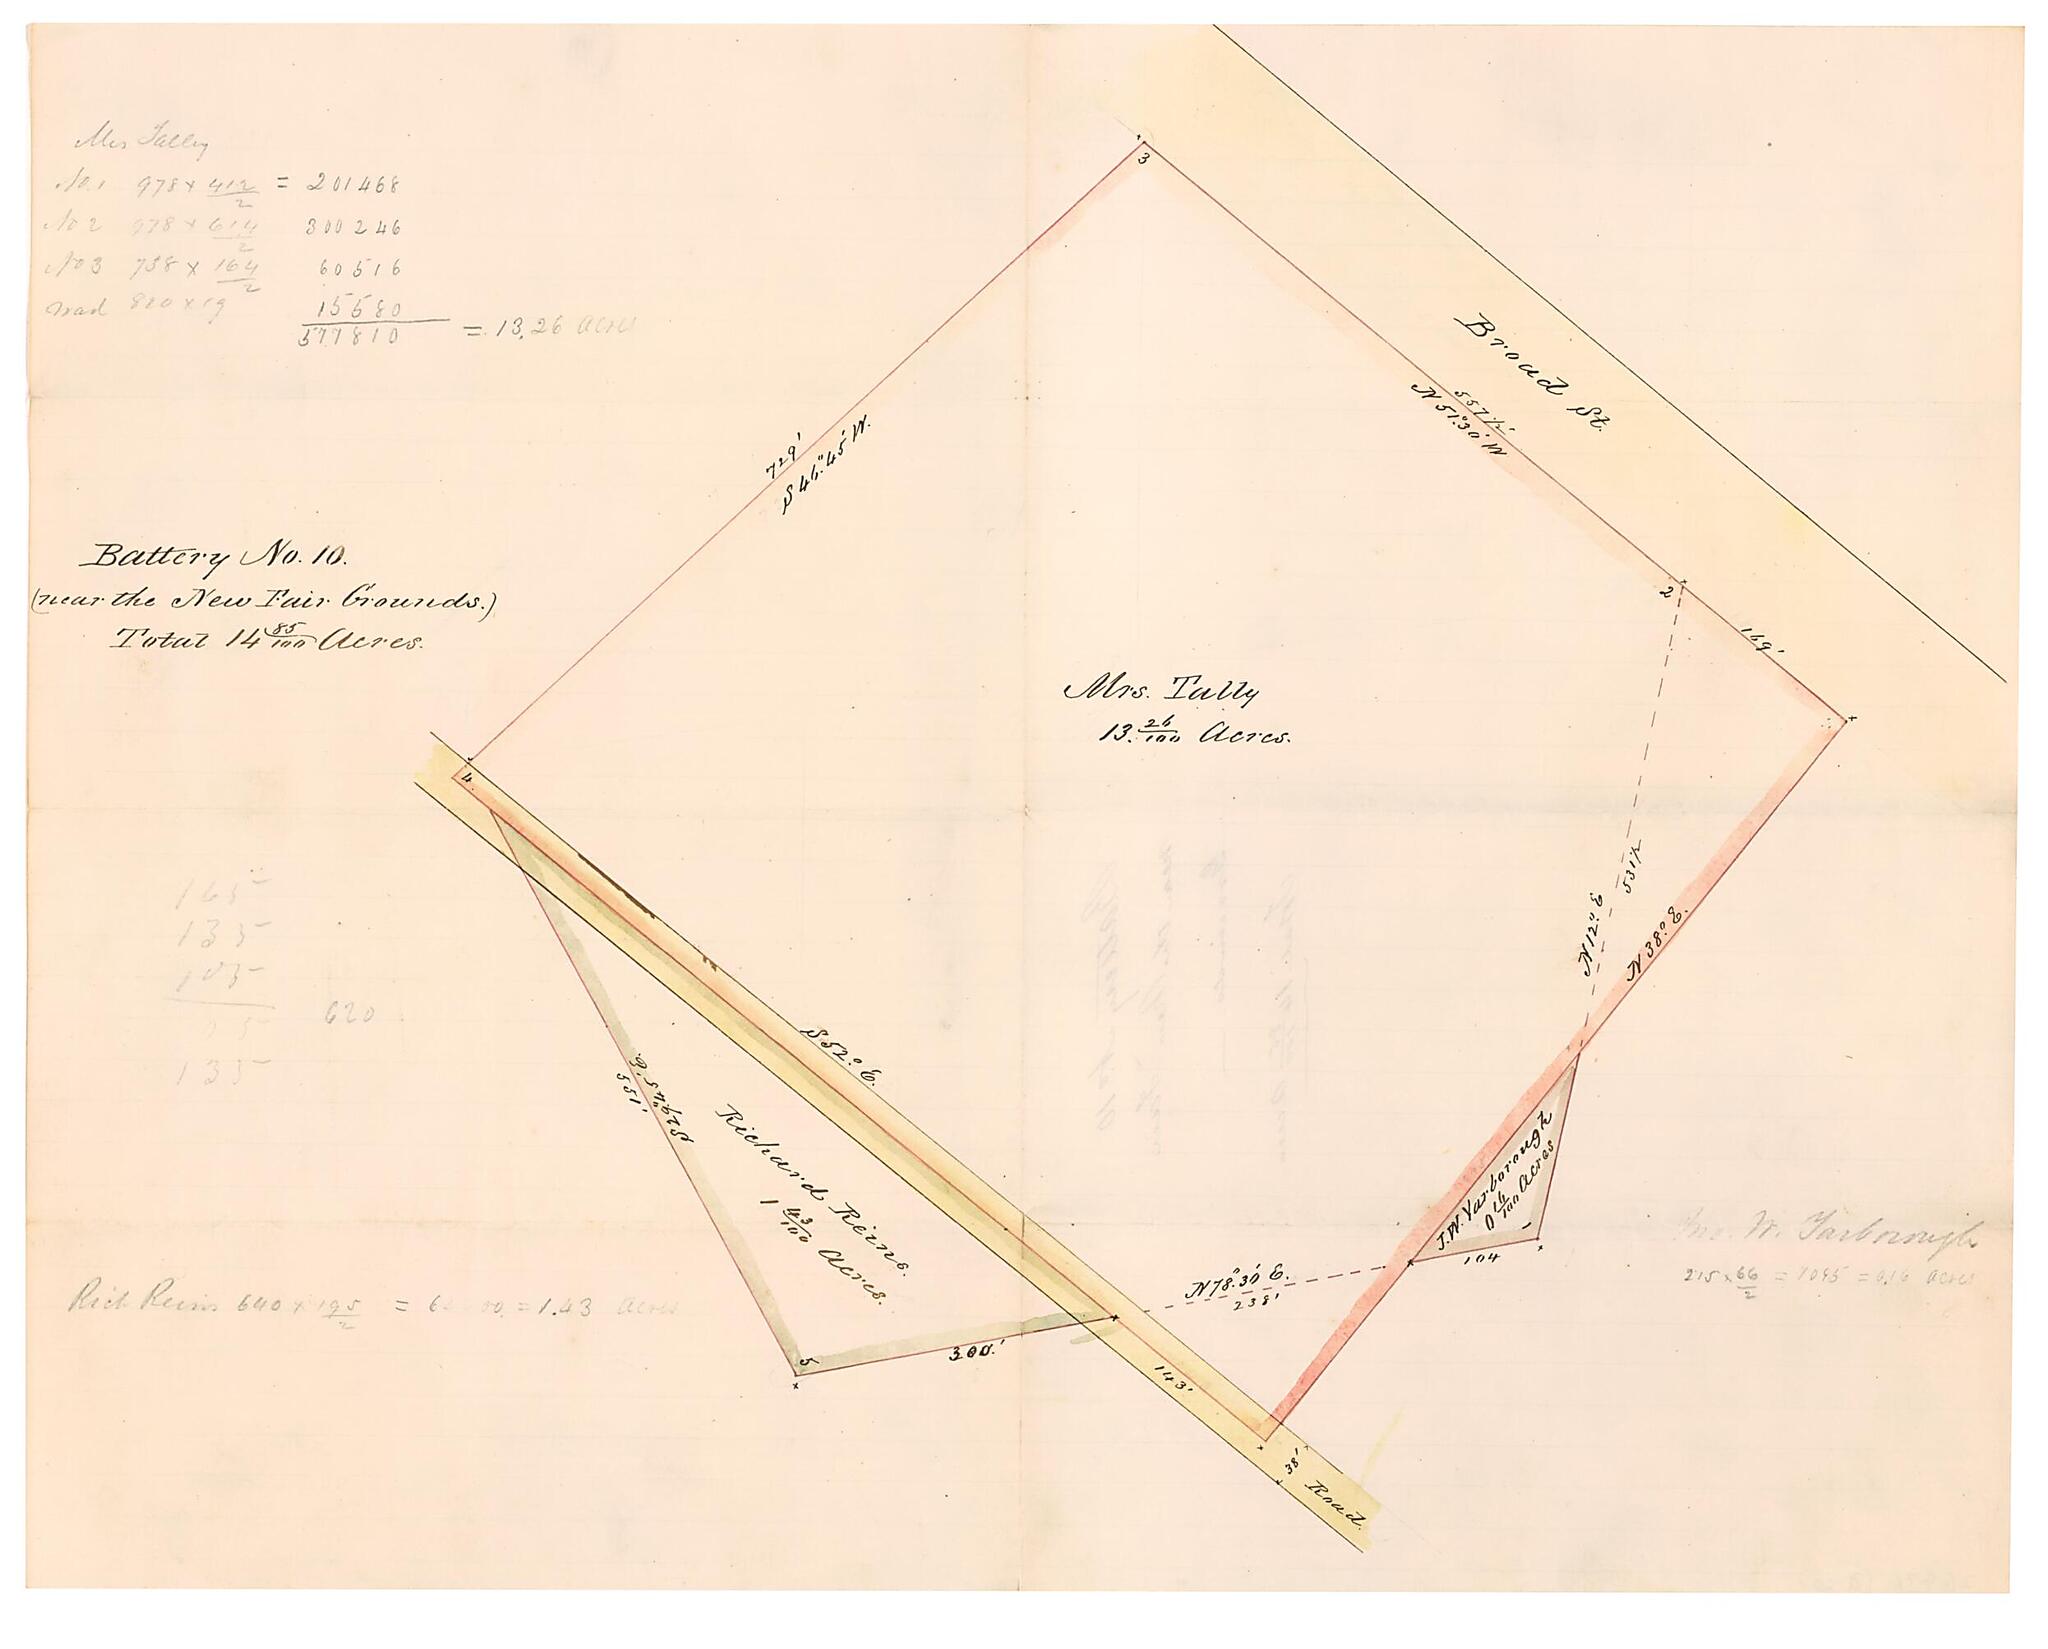 Mrs Tally
No. 1 978 x 412/2 = 201468
No 2 978 x 614/2 300246
No 3 738 x 164/2 60516
road 820 x 19 15580
577810 = 13.26 acres
Battery No. 10.
(near the New Fair Grounds.)
Total 14 85/100 Acres.
3
Broad St.
557 1/2'
N 51°.30' W
729'
S 46°.45' W.
2
169'
Mrs. Tally
13. 26/100 Acres.
4
N 12° E
531 1/2
N 38° E.
165
135
105
620
135
S 52° E.
S 29°.45' E.
551'
Richard Reins.
1 43/100 Acres.
J. W. Yarborough
0 16/100 Acres
104
Jno. W. Yarborough
215 x 66/2 = 7095 = 0.16 acres
N 78°.30' E.
238'
Rich Reins 640 x 195/2 = = 1.43 acres
5
300.'
143'
38'
Road.